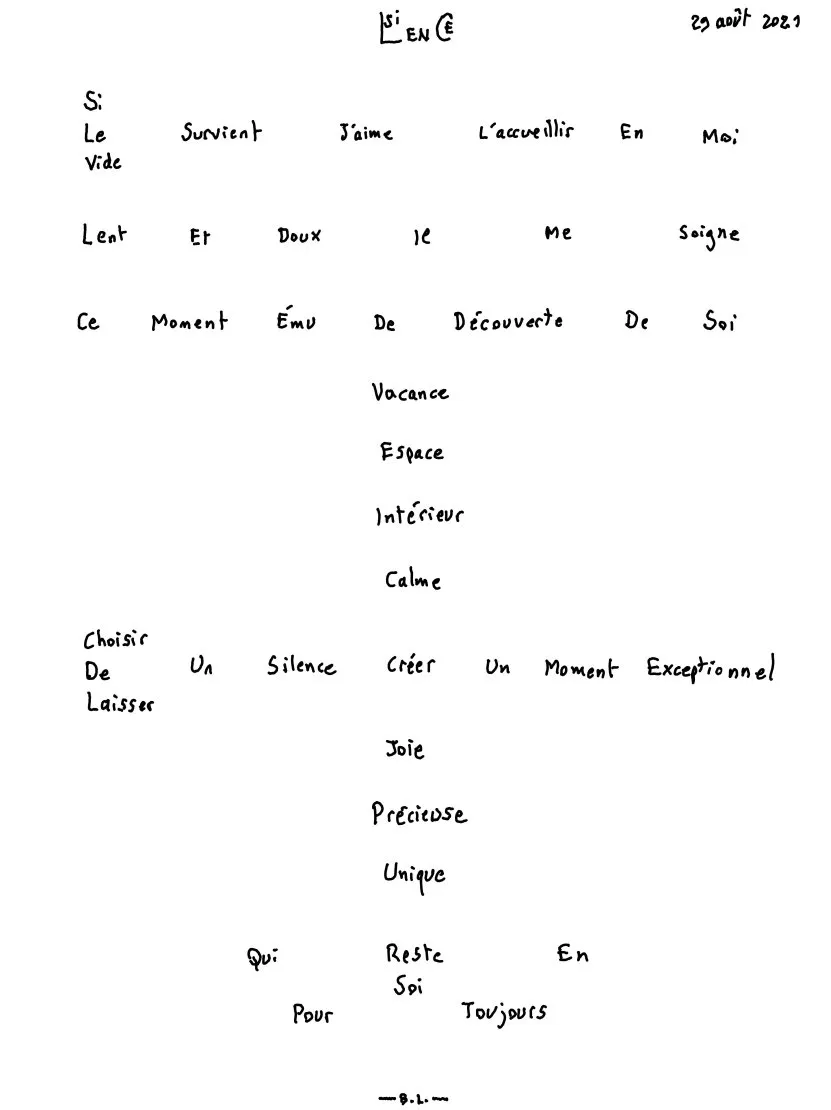 SiLENCE 29 août 2021
Si
Le Survient J'aime L'accueillir En Moi
Vide
Lent Et Doux Je Me Soigne
Ce Moment Ému De Découverte De Soi
Vacance
Espace
Intérieur
Calme
Choisir
De Un Silence Créer Un Moment Exceptionnel
Laisser
Joie
Précieuse
Unique
Qui Reste En
Soi
Pour Toujours
— B.L. —